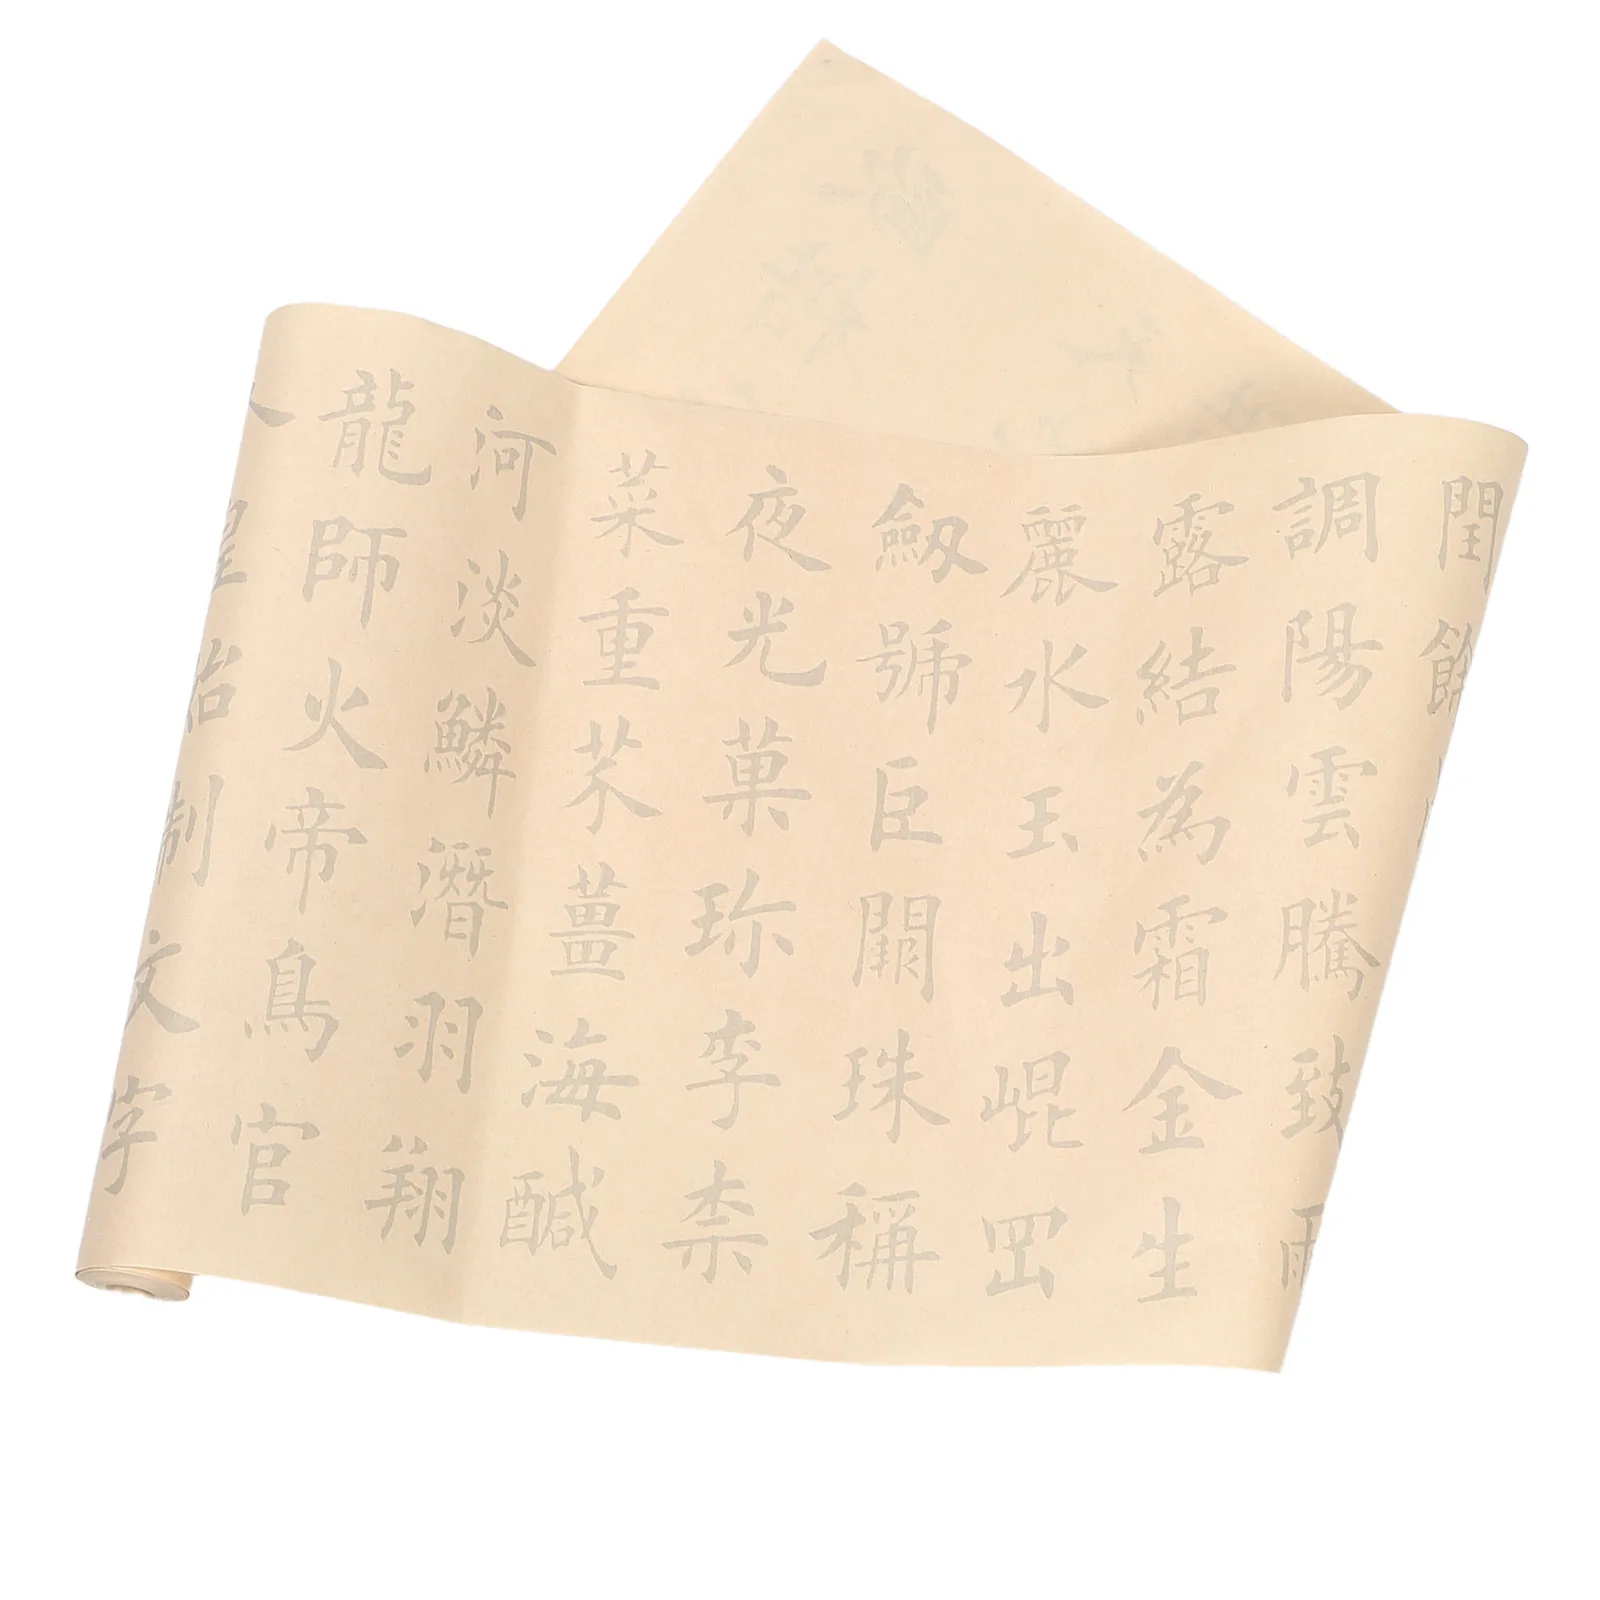 閏餘
調陽雲騰致雨
露結為霜金生
麗水玉出崐岡
劒號巨闕珠稱
夜光菓珎李柰
菜重芥薑海醎
河淡鱗潛羽翔
龍師火帝鳥官
人皇始制文字